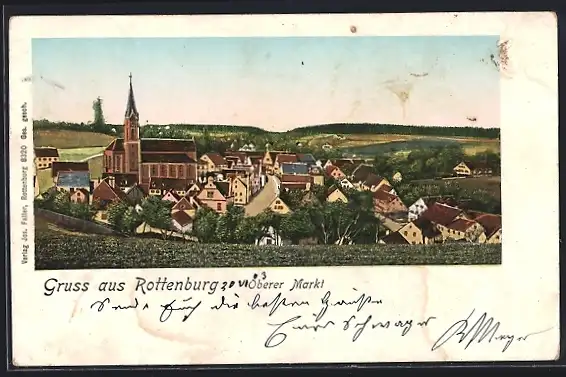 Verlag Jos. Faller, Rottenburg 8320 Ges. gesch.
Gruss aus Rottenburg Oberer Markt
Sende Euch die besten Grüsse
Euer Schwager
Meyer